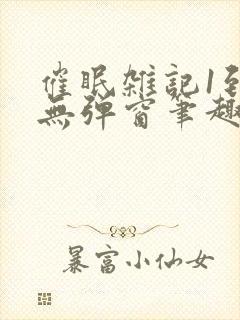 催眠雑記1到
無彈窗筆趣
暴富小仙女